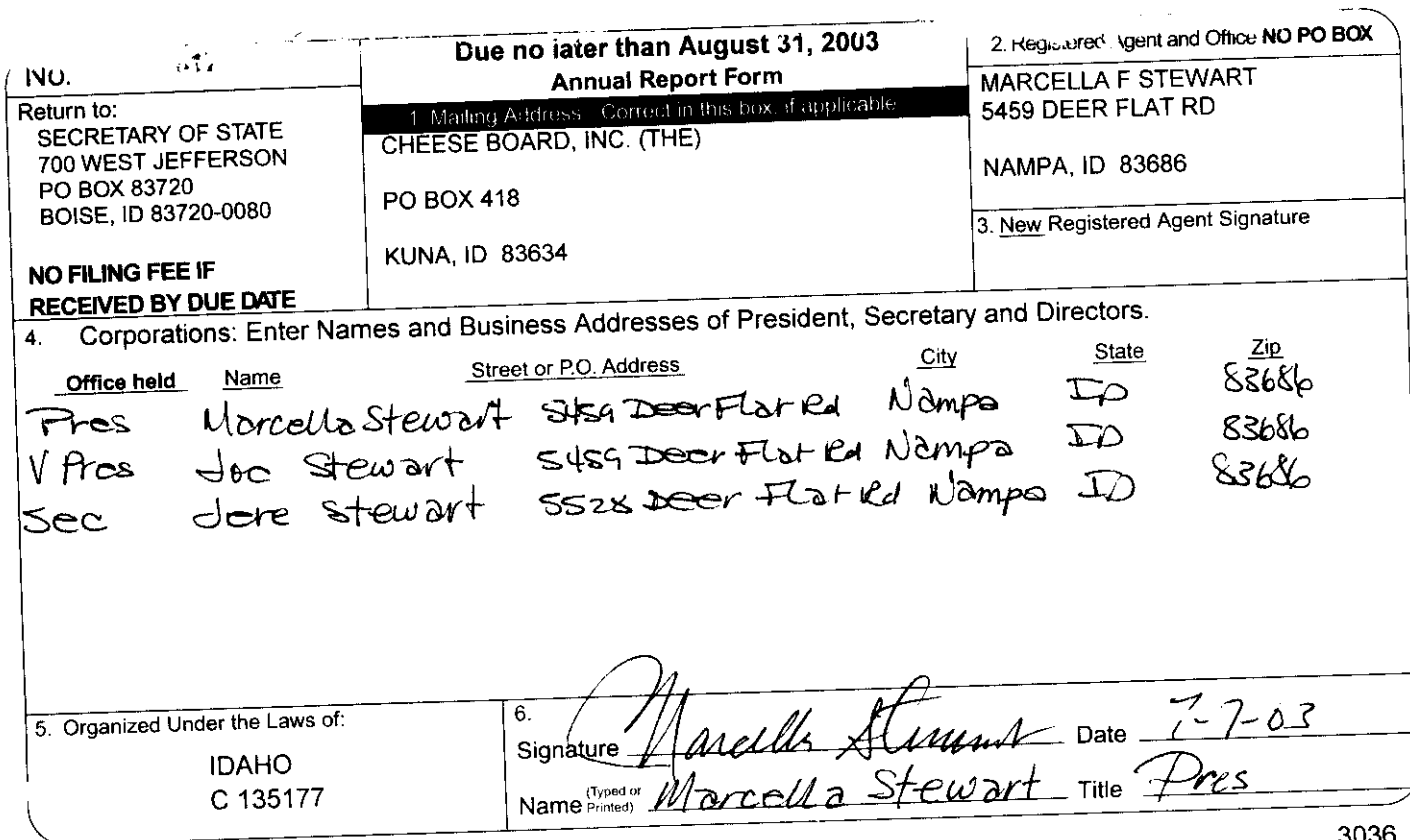 NO.
Return to:
SECRETARY OF STATE
700 WEST JEFFERSON
PO BOX 83720
BOISE, ID 83720-0080
NO FILING FEE IF
RECEIVED BY DUE DATE
Due no later than August 31, 2003
Annual Report Form
1. Mailing Address: Correct in this box, if applicable
CHEESE BOARD, INC. (THE)
PO BOX 418
KUNA, ID 83634
2. Registered Agent and Office NO PO BOX
MARCELLA F STEWART
5459 DEER FLAT RD
NAMPA, ID 83686
3. New Registered Agent Signature
4. Corporations: Enter Names and Business Addresses of President, Secretary and Directors.
Office held Name Street or P.O. Address City State Zip
Pres Marcella Stewart 5459 Deer Flat Rd Nampa ID 83686
V Pres Joe Stewart 5459 Deer Flat Rd Nampa ID 83686
Sec Jere Stewart 5528 Deer Flat Rd Nampa ID 83686
5. Organized Under the Laws of:
IDAHO
C 135177
6.
Signature Marcella Stewart Date 7-7-03
Name (Typed or Printed) Marcella Stewart Title Pres
3036